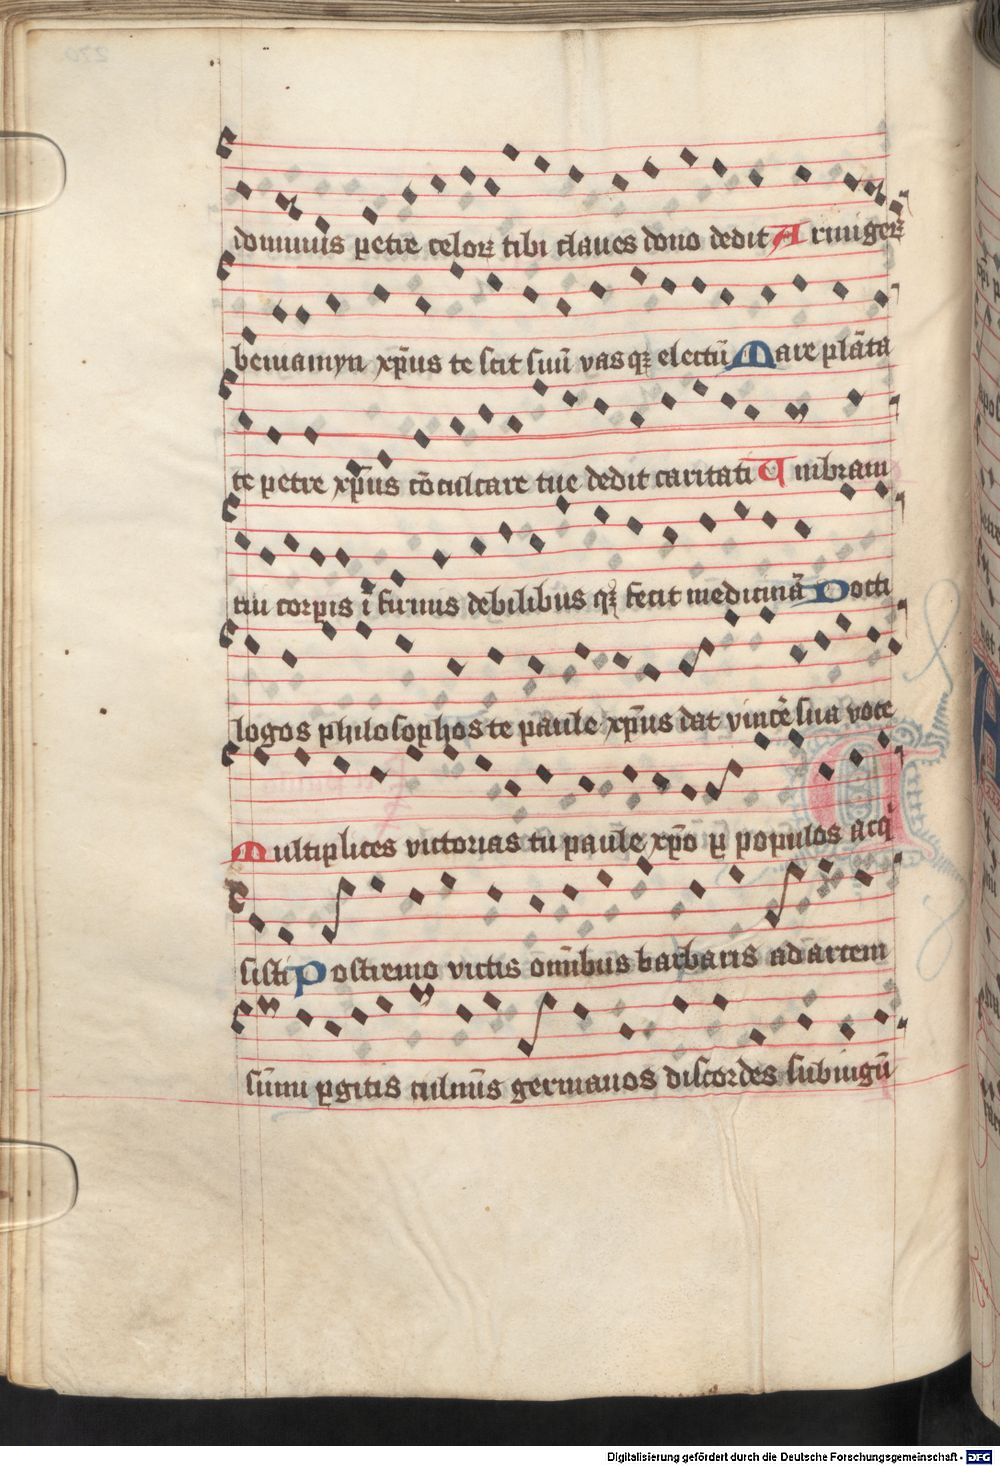 dominus petre celoꝝ tibi claues dono dedit Armigeꝝ
beniamyn xp̄us te scit suū vasqꝫ electū Mare plāta
te petre xp̄us cōculcare tue dedit caritati Vmbram
tui corꝑis īfirmis debilibus qꝫ fecit medicinā Docti
logos philosophos te paule xp̄us dat vincē sua voce
Multiplices victorias tu paule xp̄o ꝑ populos acq̇
sisti Postremo victis om̄ibus barbaris ad artem
sūmi ꝑgitis culmīs germanos discordes sub iugū
Digitalisierung gefördert durch die Deutsche Forschungsgemeinschaft - DFG